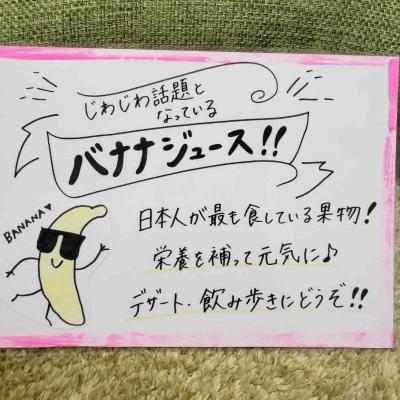 じわじわ話題と
なっている
バナナジュース!!
BANANA♥
日本人が最も食している果物!
栄養を補って元気に♪
デザート・飲み歩きにどうぞ!!